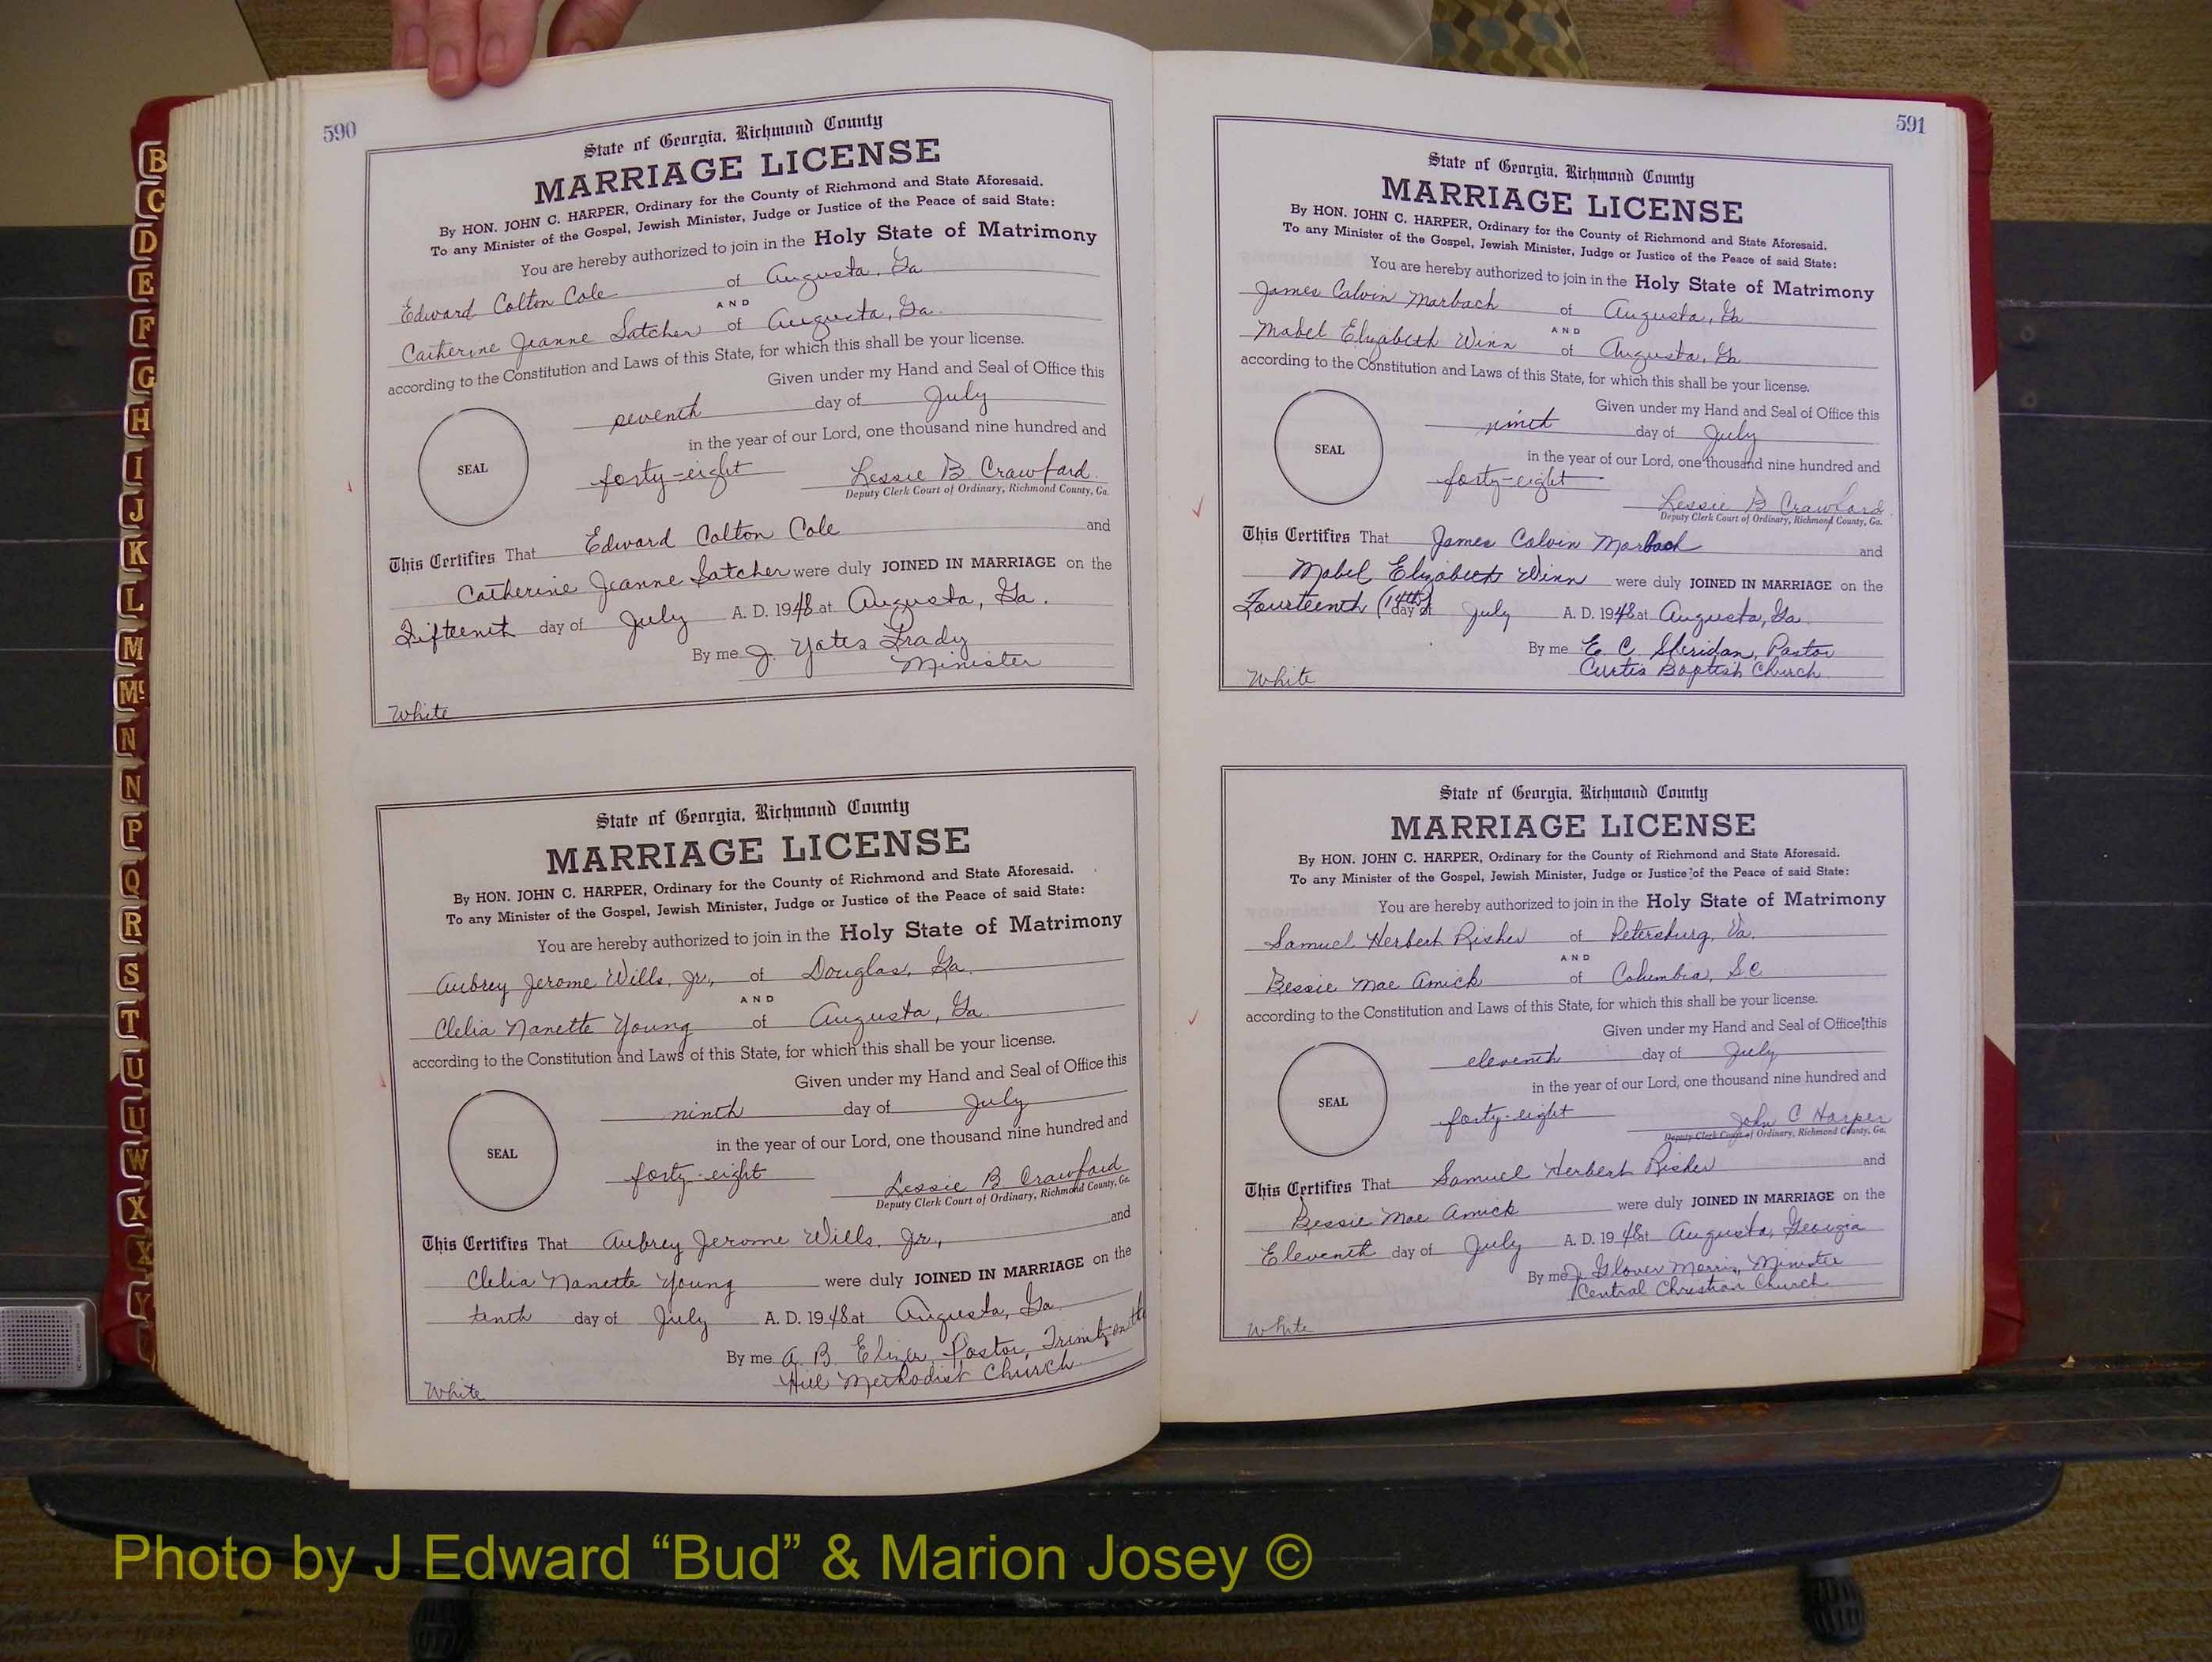 590
State of Georgia, Richmond County
MARRIAGE LICENSE
By HON. JOHN C. HARPER, Ordinary for the County of Richmond and State Aforesaid.
To any Minister of the Gospel, Jewish Minister, Judge or Justice of the Peace of said State:
You are hereby authorized to join in the Holy State of Matrimony
Edward Colton Cole of Augusta, Ga
AND
Catherine Jeanne Satcher of Augusta, Ga.
according to the Constitution and Laws of this State, for which this shall be your license.
Given under my Hand and Seal of Office this
seventh day of July
in the year of our Lord, one thousand nine hundred and
SEAL
forty-eight Lessie B. Crawford
Deputy Clerk Court of Ordinary, Richmond County, Ga.
This Certifies That Edward Colton Cole and
Catherine Jeanne Satcher were duly JOINED IN MARRIAGE on the
Fifteenth day of July A. D. 1948 at Augusta, Ga.
By me J. Yates
Minister
White
State of Georgia, Richmond County
MARRIAGE LICENSE
By HON. JOHN C. HARPER, Ordinary for the County of Richmond and State Aforesaid.
To any Minister of the Gospel, Jewish Minister, Judge or Justice of the Peace of said State:
You are hereby authorized to join in the Holy State of Matrimony
Aubrey Jerome Wills, Jr., of Douglas, Ga.
AND
Clelia Nanette Young of Augusta, Ga.
according to the Constitution and Laws of this State, for which this shall be your license.
Given under my Hand and Seal of Office this
ninth day of July
in the year of our Lord, one thousand nine hundred and
SEAL
forty-eight Lessie B Crawford
Deputy Clerk Court of Ordinary, Richmond County, Ga.
This Certifies That Aubrey Jerome Wills, Jr., and
Clelia Nanette Young were duly JOINED IN MARRIAGE on the
tenth day of July A. D. 1948 at Augusta, Ga.
By me A. B. Pastor, Trinity on the
Hill Methodist Church
White
591
State of Georgia, Richmond County
MARRIAGE LICENSE
By HON. JOHN C. HARPER, Ordinary for the County of Richmond and State Aforesaid.
To any Minister of the Gospel, Jewish Minister, Judge or Justice of the Peace of said State:
You are hereby authorized to join in the Holy State of Matrimony
James Calvin Marbach of Augusta, Ga
AND
Mabel Elizabeth Winn of Augusta, Ga
according to the Constitution and Laws of this State, for which this shall be your license.
Given under my Hand and Seal of Office this
ninth day of July
in the year of our Lord, one thousand nine hundred and
SEAL
forty-eight
Lessie B Crawford
Deputy Clerk Court of Ordinary, Richmond County, Ga.
This Certifies That James Calvin Marbach and
Mabel Elizabeth Winn were duly JOINED IN MARRIAGE on the
Fourteenth (14th) day of July A. D. 1948 at Augusta, Ga.
By me E. C. Sheridan, Pastor
Curtis Baptist Church
White
State of Georgia, Richmond County
MARRIAGE LICENSE
By HON. JOHN C. HARPER, Ordinary for the County of Richmond and State Aforesaid.
To any Minister of the Gospel, Jewish Minister, Judge or Justice of the Peace of said State:
You are hereby authorized to join in the Holy State of Matrimony
Samuel Herbert Risher of Petersburg, Va.
AND
Bessie Mae Amick of Columbia, S.C
according to the Constitution and Laws of this State, for which this shall be your license.
Given under my Hand and Seal of Office this
eleventh day of July
in the year of our Lord, one thousand nine hundred and
SEAL
forty-eight John C Harper
Deputy Clerk Court of Ordinary, Richmond County, Ga.
This Certifies That Samuel Herbert Risher and
Bessie Mae Amick were duly JOINED IN MARRIAGE on the
Eleventh day of July A. D. 1948 at Augusta, Georgia
By me J. Glover Morris, Minister
Central Christian Church
White
B
C
D
E
F
G
H
I
J
K
L
M
Mc
N
N
P
Q
R
S
T
U
U
W
X
X
Y
Photo by J Edward “Bud” & Marion Josey ©